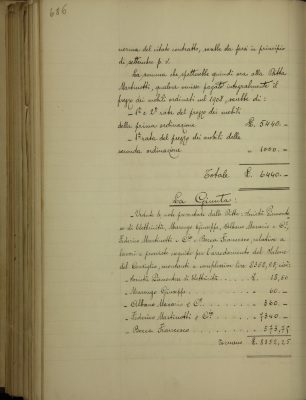 686
norma del citato contratto, scelta da farsi in principio
di settembre p. v.
La somma che spetterebbe quindi ora alla Ditta
Martinotti, qualora venisse pagato integralmente il
prezzo dei mobili ordinati nel 1908, sarebbe di:
- 1ª e 2ª rata del prezzo dei mobili
della prima ordinazione £. 5440.-
- 1ª rata del prezzo di mobili della
seconda ordinazione " 1000.-
Totale £. 6440.-
La Giunta:
- Vedute le note presentate dalle Ditte: Società Piemontese
di Elettricità, Marengo Giuseppe, Albano Macario e Cⁱ,
Federico Martinotti e Cⁱ - Bocca Francesco, relative a
lavori e provviste eseguite per l'arredamento del Salone
del Consiglio, ascendenti a complessive lire
- Società Piemontese di Elettricità £. 18,50
- Marengo Giuseppe " 60.-
- Albano Macario e Cⁱ. " 360.-
- Federico Martinotti e Cⁱ. " 7340.-
- Bocca Francesco " 573,75
Tornano £. 8352,25